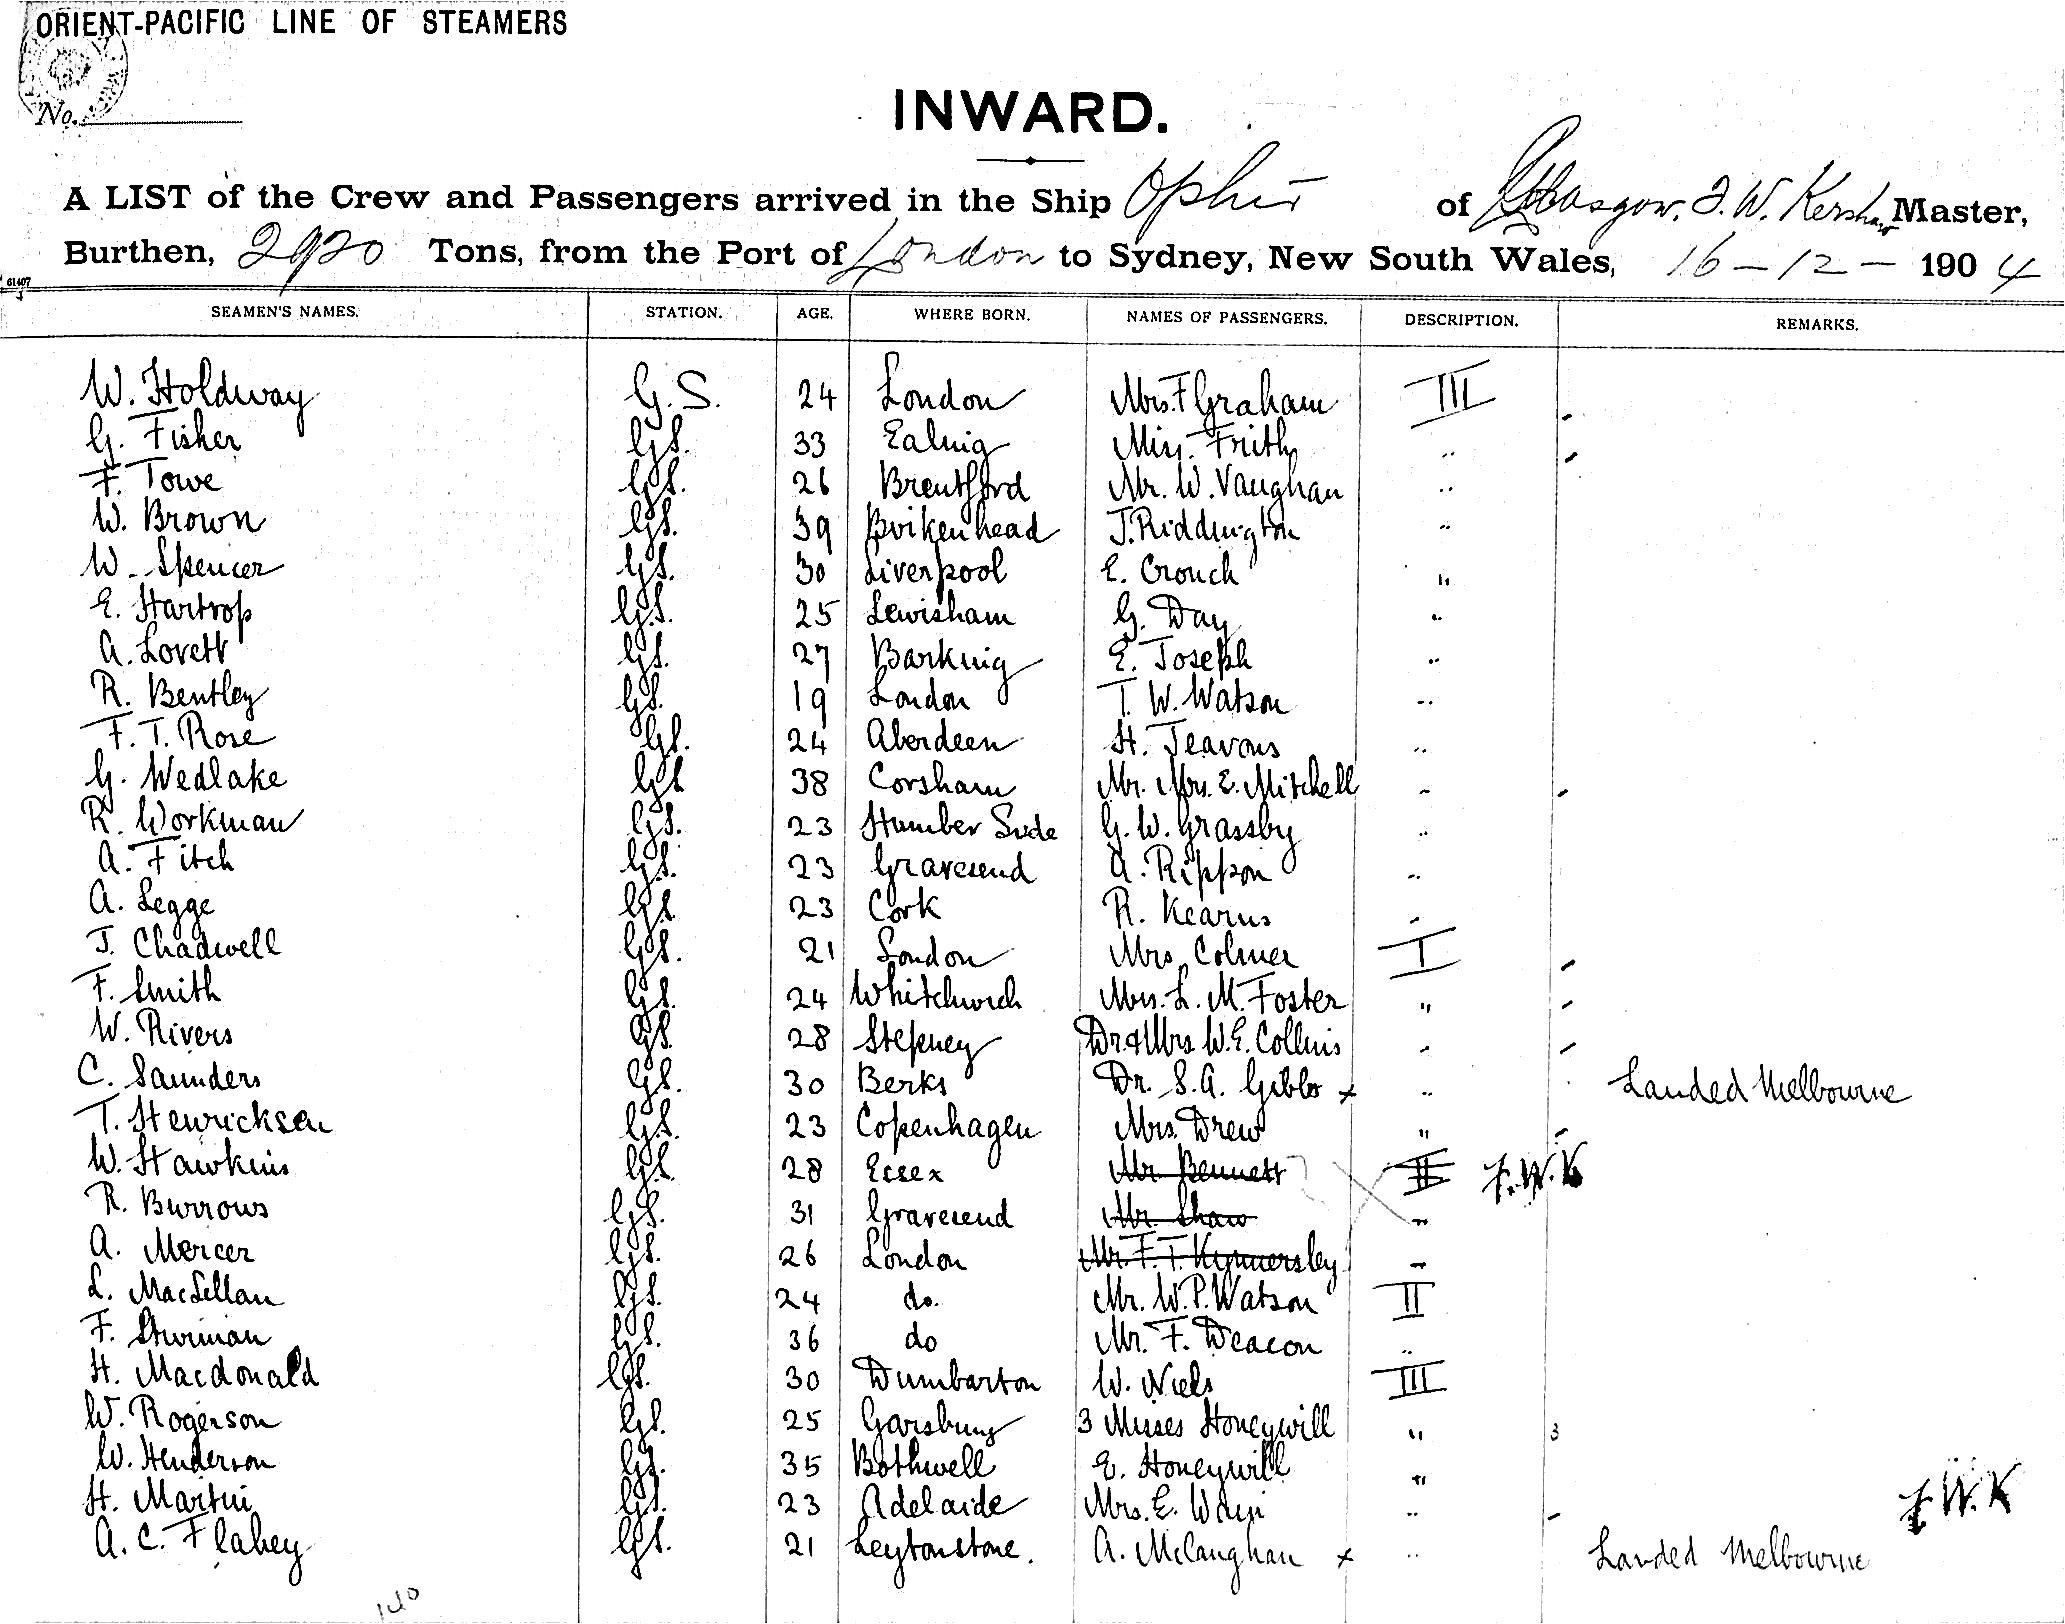 ORIENT-PACIFIC LINE OF STEAMERS
No.
INWARD.
A LIST of the Crew and Passengers arrived in the Ship Ophir of Glasgow, F. W. Kershaw Master,
Burthen, 2920 Tons, from the Port of London to Sydney, New South Wales, 16 - 12 - 1904
61407
SEAMEN'S NAMES. STATION. AGE. WHERE BORN. NAMES OF PASSENGERS. DESCRIPTION. REMARKS.
W. Holdway G.S. 24 London Mrs. F Graham III
G. Fisher G.S. 33 Ealing Miss. Frith "
F. Towe G.S. 26 Brentford Mr. W. Vaughan "
W. Brown G.S. 39 Birkenhead J. Riddington "
W. Spencer G.S. 30 Liverpool E. Crouch "
E. Hartrop G.S. 25 Lewisham G. Day "
A. Lovett G.S. 27 Barking E. Joseph "
R. Bentley G.S. 19 London T. W. Watson "
F. T. Rose G.S. 24 Aberdeen H. Jeavons "
G. Wedlake G.S. 38 Corsham Mr. Mrs. E. Mitchell "
R. Workman G.S. 23 Humber Side G. W. Grassby "
A. Fitch G.S. 23 Gravesend A. Rippon "
A. Legge G.S. 23 Cork R. Kearns "
J. Chadwell G.S. 21 London Mrs. Colmer I
F. Smith G.S. 24 Whitchurch Mrs. L. M. Foster "
W. Rivers G.S. 28 Stepney Dr. & Mrs W. E. Collins "
C. Saunders G.S. 30 Berks Dr. S. A. Gibbs x " Landed Melbourne
T. Henricksen G.S. 23 Copenhagen Mrs. Drew "
W. Hawkins G.S. 28 Essex Mr Bennett II F.W.K
R. Burrows G.S. 31 Gravesend Mr. Shaw "
A. Mercer G.S. 26 London Mr. F. T. Kynnersley "
L. MacLellan G.S. 24 do. Mr. W. P. Watson II
F. Sturman G.S. 36 do Mr. F. Deacon "
H. Macdonald G.S. 30 Dumbarton W. Niels III
W. Rogerson G.S. 25 3 Misses Honeywill " 3
W. Henderson G.S. 35 Bothwell E. Honeywill "
H. Martin G.S. 23 Adelaide Mrs. E. " F.W.K
A. C. Flahey G.S. 21 Leytonstone. A. McLaughan x " Landed Melbourne
140